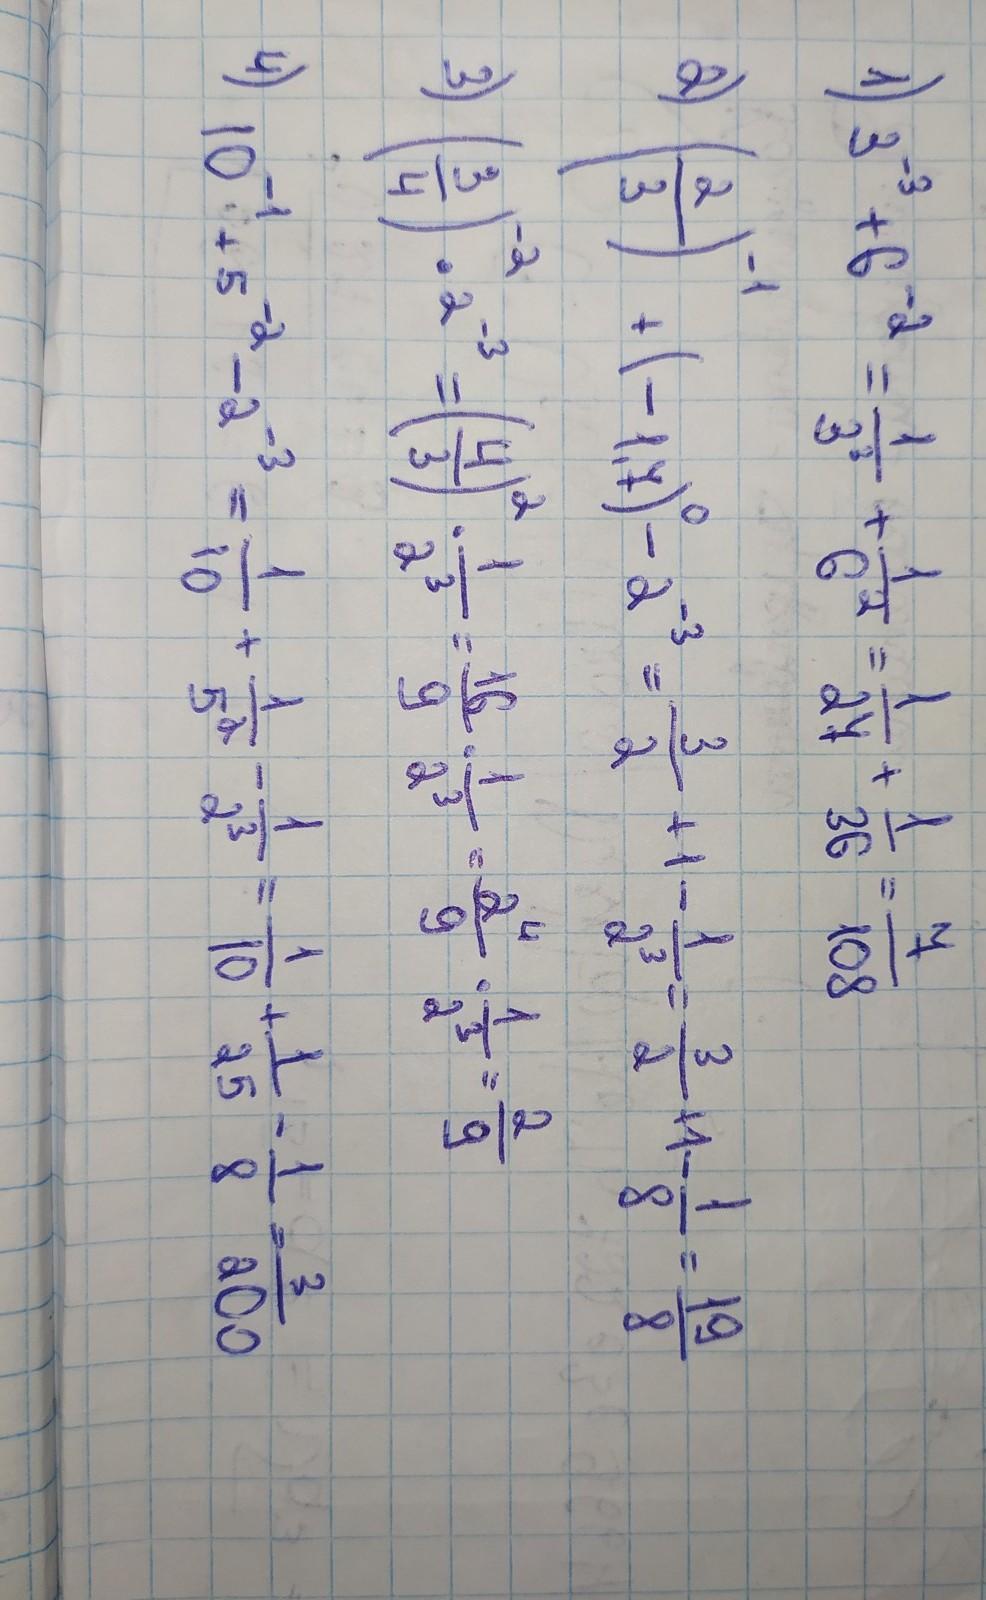 1) 3⁻³ + 6⁻² = 1/3³ + 1/6² = 1/27 + 1/36 = 7/108
2) (2/3)⁻¹ + (-1,7)⁰ - 2⁻³ = 3/2 + 1 - 1/2³ = 3/2 + 1 - 1/8 = 19/8
3) (3/4)⁻² · 2⁻³ = (4/3)² · 1/2³ = 16/9 · 1/2³ = 2⁴/9 · 1/2³ = 2/9
4) 10⁻¹ + 5⁻² - 2⁻³ = 1/10 + 1/5² - 1/2³ = 1/10 + 1/25 - 1/8 = 3/200